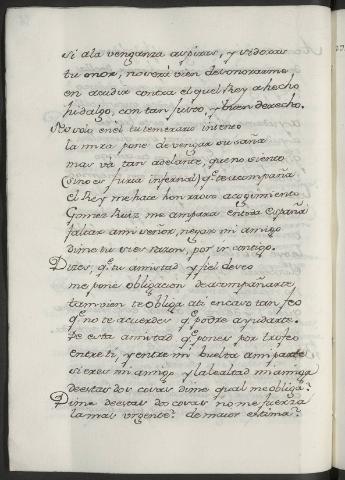 si ala venganza aspiras, y vedoras
tu onor, no verá vien desonorarme,
en acudir contra el quel Rey a hecho
hidalgo, con tan justo, y buen derecho.
No voio en el tu temerario intento
la mira pone de vengar su saña
mas va tan adelante, que no siento
(sino es furia infernal) q.e te acompaña
el Rey me hace honrroso acogimiento
Gomez Ruiz me ampara entoda España
faltar ami señor, negar mi amigo
dime tu si es razon, por ir contigo.
Dizes, q.e tu amistad y fiel deseo
me pone obligacion de acompañarte
tamvien te obliga a ti en caso tan feo
q.e no te acuerdes q.e podre ayudarte.
De esta amistad q.e pones por trofeo
entre ti, y entre mi buelta ami parte
si eres mi amigo y la lealtad mi amiga
de estas dos cosas dime qual me obliga?
Dime de estas dos cosas no me fuerza
la mas urgente? de maior estima?